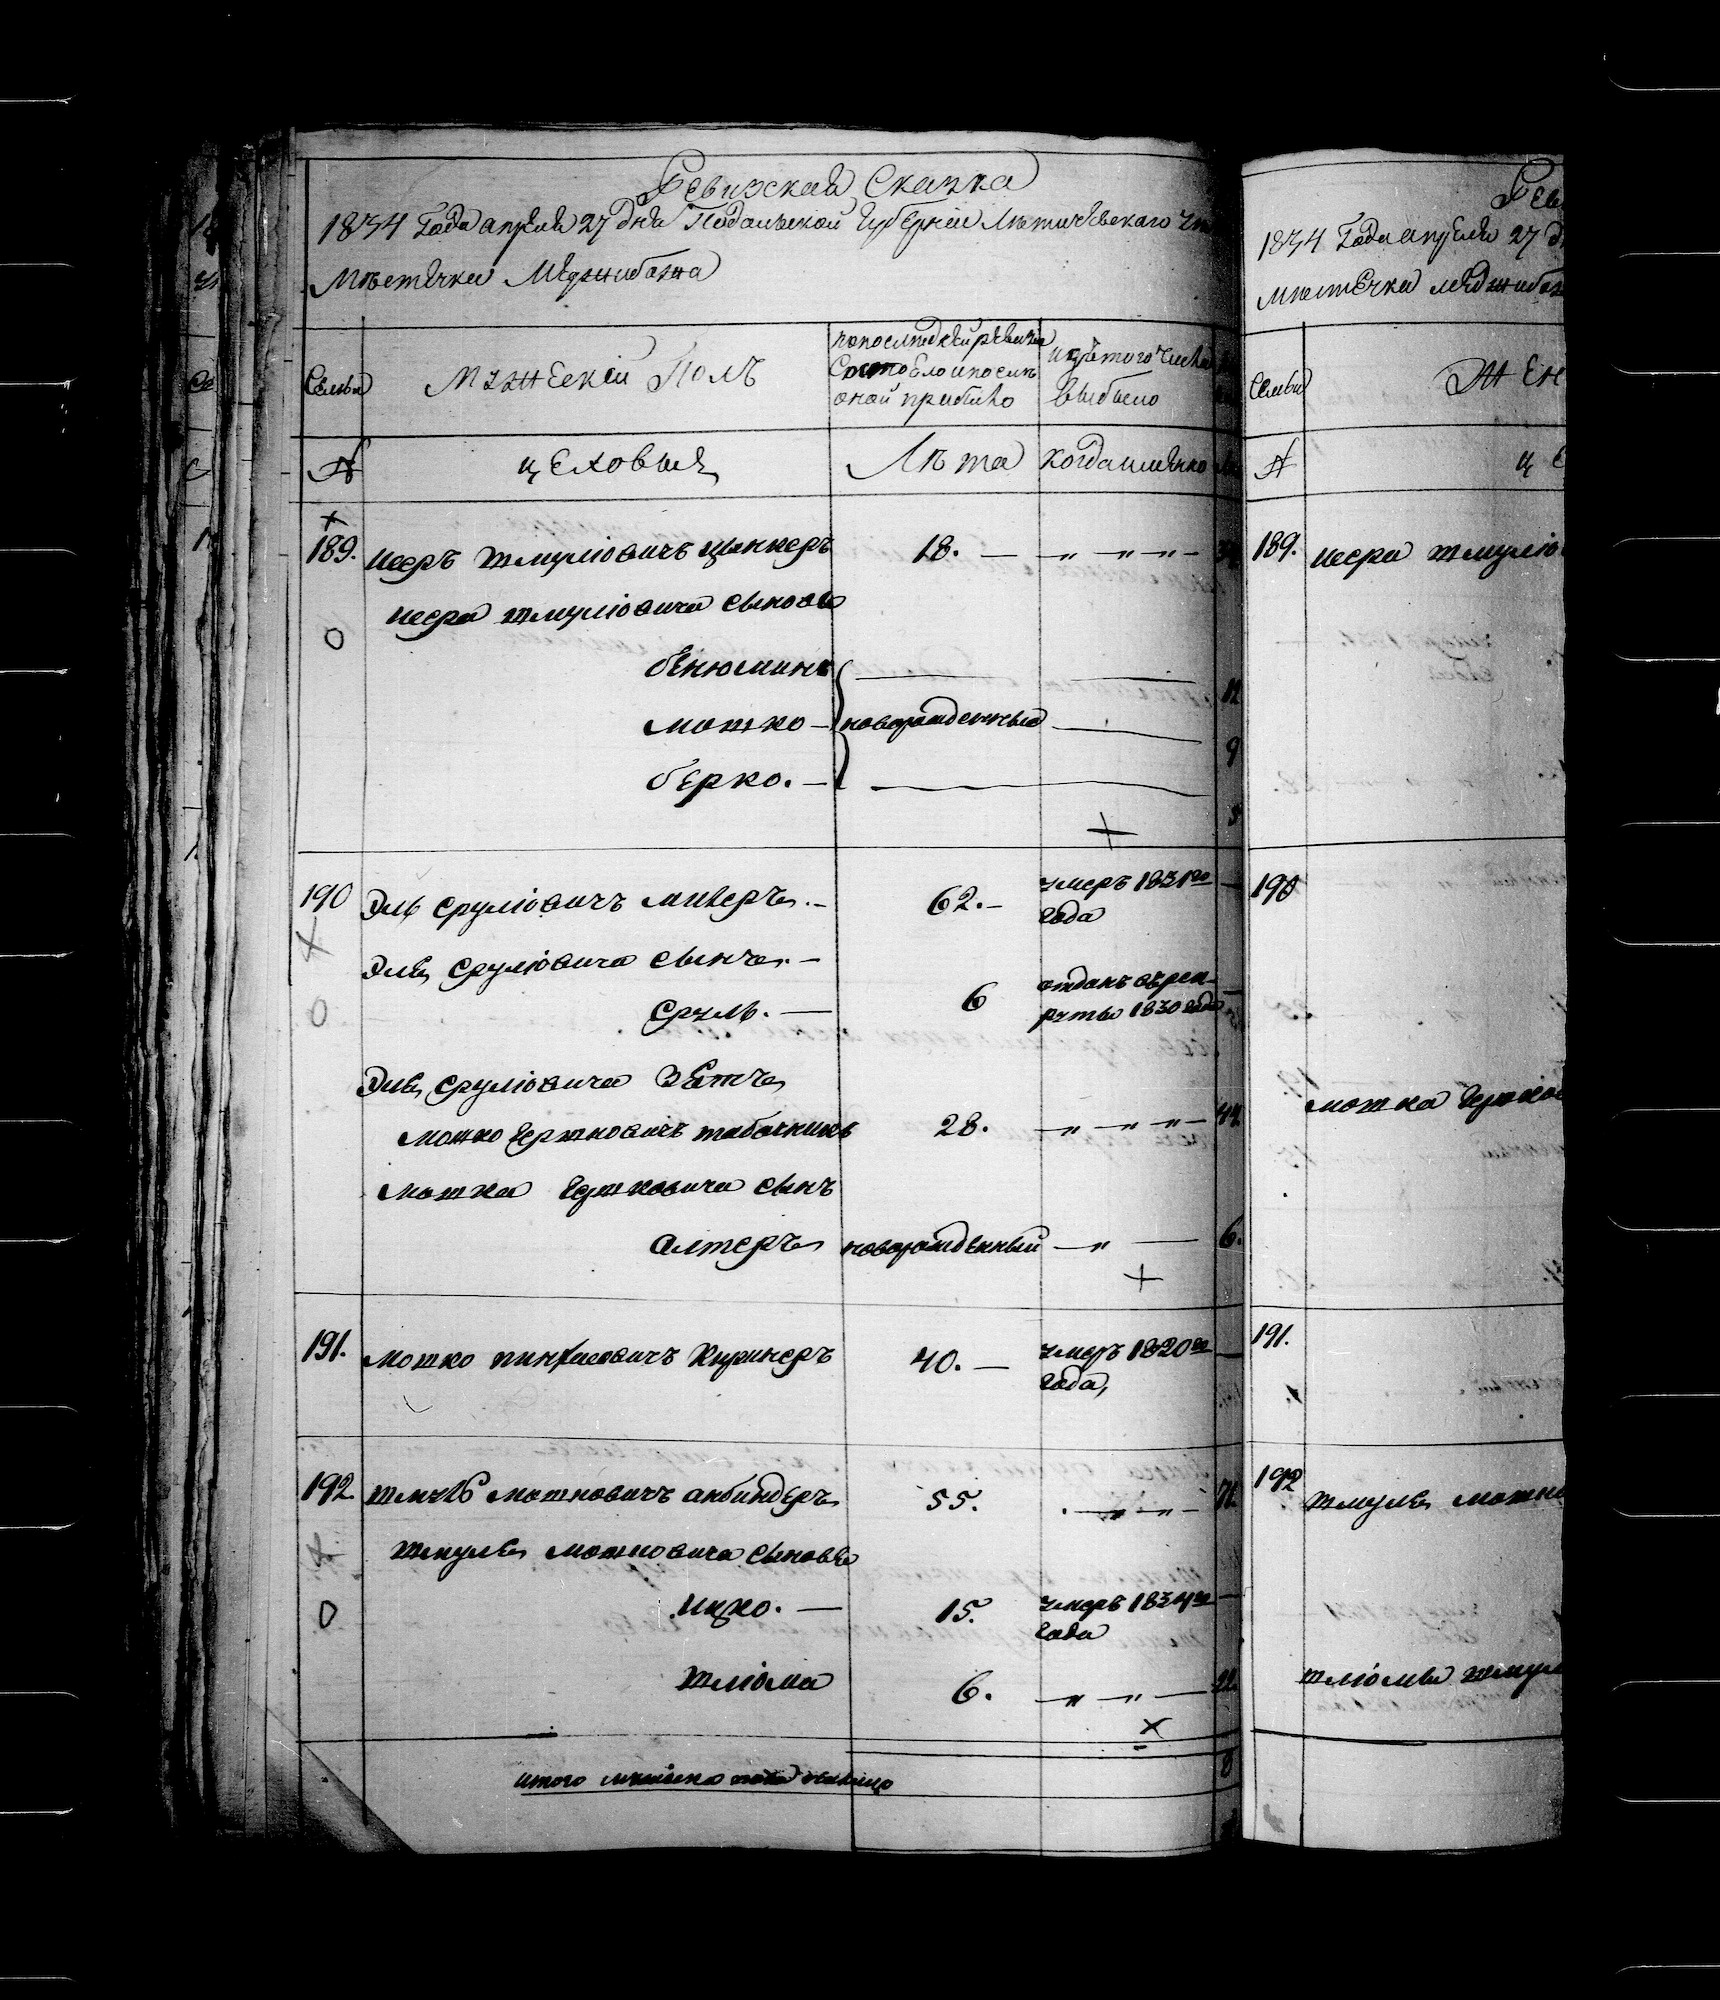 Ревизская Сказка
1834 Года апреля 27 дня Подольской Губернии Летичевского
Местечка Меджибожа
Семьи
Мужеский Полъ
По последней ревизии
Состояло и после
оной прибыло
изъ того числа
выбыло
№
цеховые
Лета
когда именно
189.
Шмулiовичъ
18. — „ „ „ —
Шмулiовича Сыновья
Бенюминъ
Мошко — новорожденные
9
Берко. —
190
Эль Срулiовичъ
62. —
умеръ 1831го
года
Эля Срулiовича Сынъ. —
Сруль. —
6
отданъ в рек-
руты 1830 года
Эля Срулiовича Зять
Мошко Гершковичъ табачникъ
28. — „ „ „ — 44
Мошка Гершковича Сынъ
Алтеръ новорожденный — „ — 6.
191.
Мошко Пинхасовичъ
40. —
умеръ 1820го
года,
192.
Шмуль Мошковичъ
55. — „ „ — 71
Шмуля Мошковича Сыновья
Ицко. —
15.
умеръ 1834го
года
Шлiома
6. — „ „ — 22.
итого мужеска пола налицо
8
Рев
1834 Года апреля 27 д
Местечка Меджибож
Семьи
Жен
№
це
189.
Шмулiо
190
Мошка Гершков
191.
192
Шмуля Мошко
Шлiомы Шмул